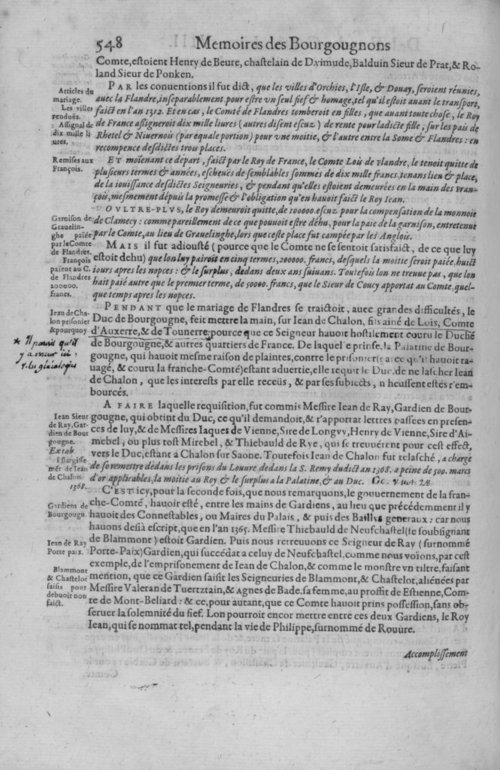 548 Memoires des Bourgougnons
Comte, estoient Henry de Beure, chastelain de Dixmude, Balduin Sieur de Prat, & Ro-
land Sieur de Ponken.
PAR les conuentions il fut dict, que les villes d'Orchies, l'Isle, & Douay, seroient reünies,
auec la Flandre, inseparablement pour estre vn seul fief & homage, tel qu'il estoit auant le transport,
faict en l'an 1312. Et en cas, le Comté de Flandres tomberoit en filles, que auant toute chose, le Roy
de France assigneroit dix mille liures (autres disent escuz) de rente pour ladicte fille, sur les païs de
Rhetel & Niuernois (par equale portion) pour vne moitie, & l'autre entre la Some & Flandres: en
recompence desdictes trois places.
ET moienant ce depart, faict par le Roy de France, le Comte Lois de vlandre, le tenoit quitte de
plusieurs termes & années, escheuës de semblables sommes de dix mille francs, tenans lieu & place,
de la iouissance desdictes Seigneuries, & pendant qu'elles estoient demeurées en la main des Fran-
çois, mesmement depuis la promesse & l'obligation qu'en hauoit faict le Roy Iean.
OVLTRE-PLVS, le Roy demeuroit quitte, de 100000. escuz. pour la compensation de la monnoie
de Clamecy: comme pareillement de ce que pouuoit estre dehu, pour la païe de la garnison, entretenue
par le Comte, au lieu de Grauelinghe, lors que ceste place fut campée par les Anglois.
MAIS il fut adiousté (pource que le Comte ne se sentoit satisfaict, de ce que luy
estoit dehu) que lon luy pairoit en cinq termes, 200000. francs, desquels la moitie seroit païée, huict
iours apres les nopces: & le surplus, dedans deux ans suiuans. Toutefois lon ne trouue pas, que lon
hait païé autre que le premier terme, de 50000. francs, que le Sieur de Coucy apportat au Comte, quel-
que temps apres les nopces.
PENDANT que le mariage de Flandres se traictoit, auec grandes difficultés, le
Duc de Bourgougne, feit mettre la main, sur Iean de Chalon, fils ainé de Lois, Comte
d'Auxerre, & de Tonnerre: pource que ce Seigneur hauoit hostalement couru le Duché
de Bourgougne, & autres quartiers de France. De laquelle prinse, la Palatine de Bour-
gougne, qui hauoit mesme raison de plaintes, contre le prisonnier (auec qu'il hauoit ra-
uagé, & couru la franche-Comté) estant aduertie, elle requit le Duc, de ne lascher Iean
de Chalon, que les interests par elle receüs, & par ses subiects, n'heussent estés r'em-
bourcés.
A FAIRE laquelle requisition, fut commis Messire Iean de Ray, Gardien de Bour-
gougne, qui obtint du Duc, ce qu'il demandoit, & r'apportat lettres passees en presen-
ces de luy, & de Messires Iaques de Vienne, Sire de Longvy, Henry de Vienne, Sire d'Ai-
mebel, ou plus tost Mirebel, & Thiebauld de Rye, qui se treuuérent pour cest effect,
vers le Duc, estant à Chalon sur Saone. Toutefois Iean de Chalon fut relasché, a charge
de se remettre dedans les prisons du Louure, dedans la S. Remy dudict an 1368. a peine de 500. marcs
d'or applicables, la moitie au Roy & le surplus a la Palatine, & au Duc.
C'EST icy, pour la seconde fois, que nous remarquons, le gouuernement de la fran-
che-Comté, hauoir esté, entre les mains de Gardiens, au lieu que précédemment il y
hauoit des Connestables, ou Maires du Palais, & puis des Baillis generaux: car nous
hauons desià escript, que en l'an 1365. Messire Thiebauld de Neufchastel (se soubsignant
de Blammont) estoit Gardien. Puis nous retreuuons ce Seigneur de Ray (surnommé
Porte-Paix) Gardien, qui succédat a celuy de Neufchastel, comme nous voions, par cest
exemple, de l'emprisonement de Iean de Chalon, & comme le monstre vn tiltre, faisant
mention, que ce Gardien saisit les Seigneuries de Blammont, & Chastelot, aliénées par
Messire Valeran de Tuertztain, & Agnes de Bade, sa femme, au proffit de Estienne, Com-
te de Mont-Beliard: & ce, pour autant, que ce Comte hauoit prins possession, sans ob-
seruer la solemnité du fief. Lon pourroit encor mettre entre ces deux Gardiens, le Roy
Iean, qui se nommat tel, pendant la vie de Philippe, surnommé de Rouure.
Accomplissement
Articles du
mariage.
Les villes
rendües.
Assignal de
dix mille li-
ures.
Remises aux
François.
Garnison de
Grauelin-
ghe païée
par le Comte
de Flandres.
François
païent au C.
de Flandres
200000.
francs.
Iean de Cha-
lon prisonier
& pourquoy
Iean Sieur
de Ray, Gar-
dien de Bour-
gougne.
mér de Iean
de Chalon.
1368.
Gardiens de
Bourgougn.
Iean de Ray
Porte paix.
Blammont
& Chastelot
saisis pour
debuoir non
faict.